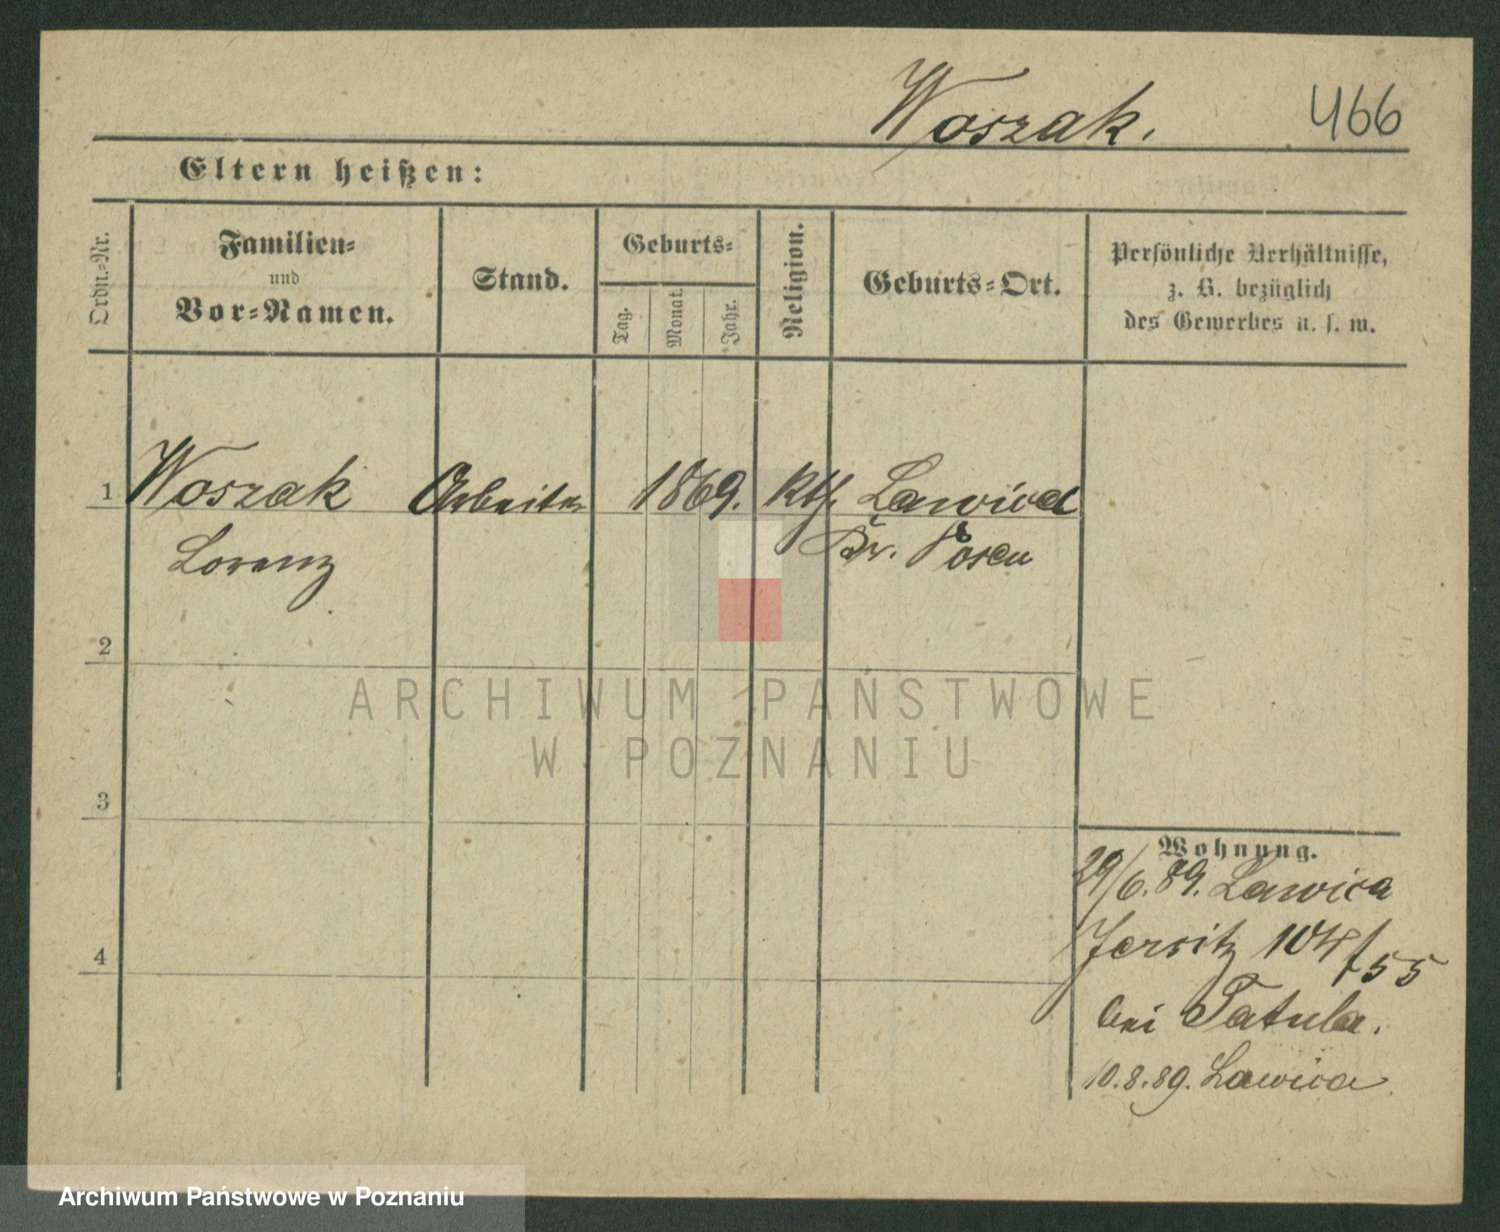 Woszak. 466
Eltern heißen:
Ordn.-Nr.
Familien-
und
Vor-Namen.
Stand.
Geburts-
Tag.
Monat.
Jahr.
Religion.
Geburts-Ort.
Persönliche Verhältnisse,
z. B. bezüglich
des Gewerbes u. s. w.
1 Woszak Arbeiter 1869. kth. Lawica
Lorenz Kr. Posen
2
ARCHIWUM PAŃSTWOWE
W POZNANIU
3
Wohnung.
29/6.89. Lawica
Jersitz 104/55
4
bei Tatula.
10.8.89. Lawica
Archiwum Państwowe w Poznaniu